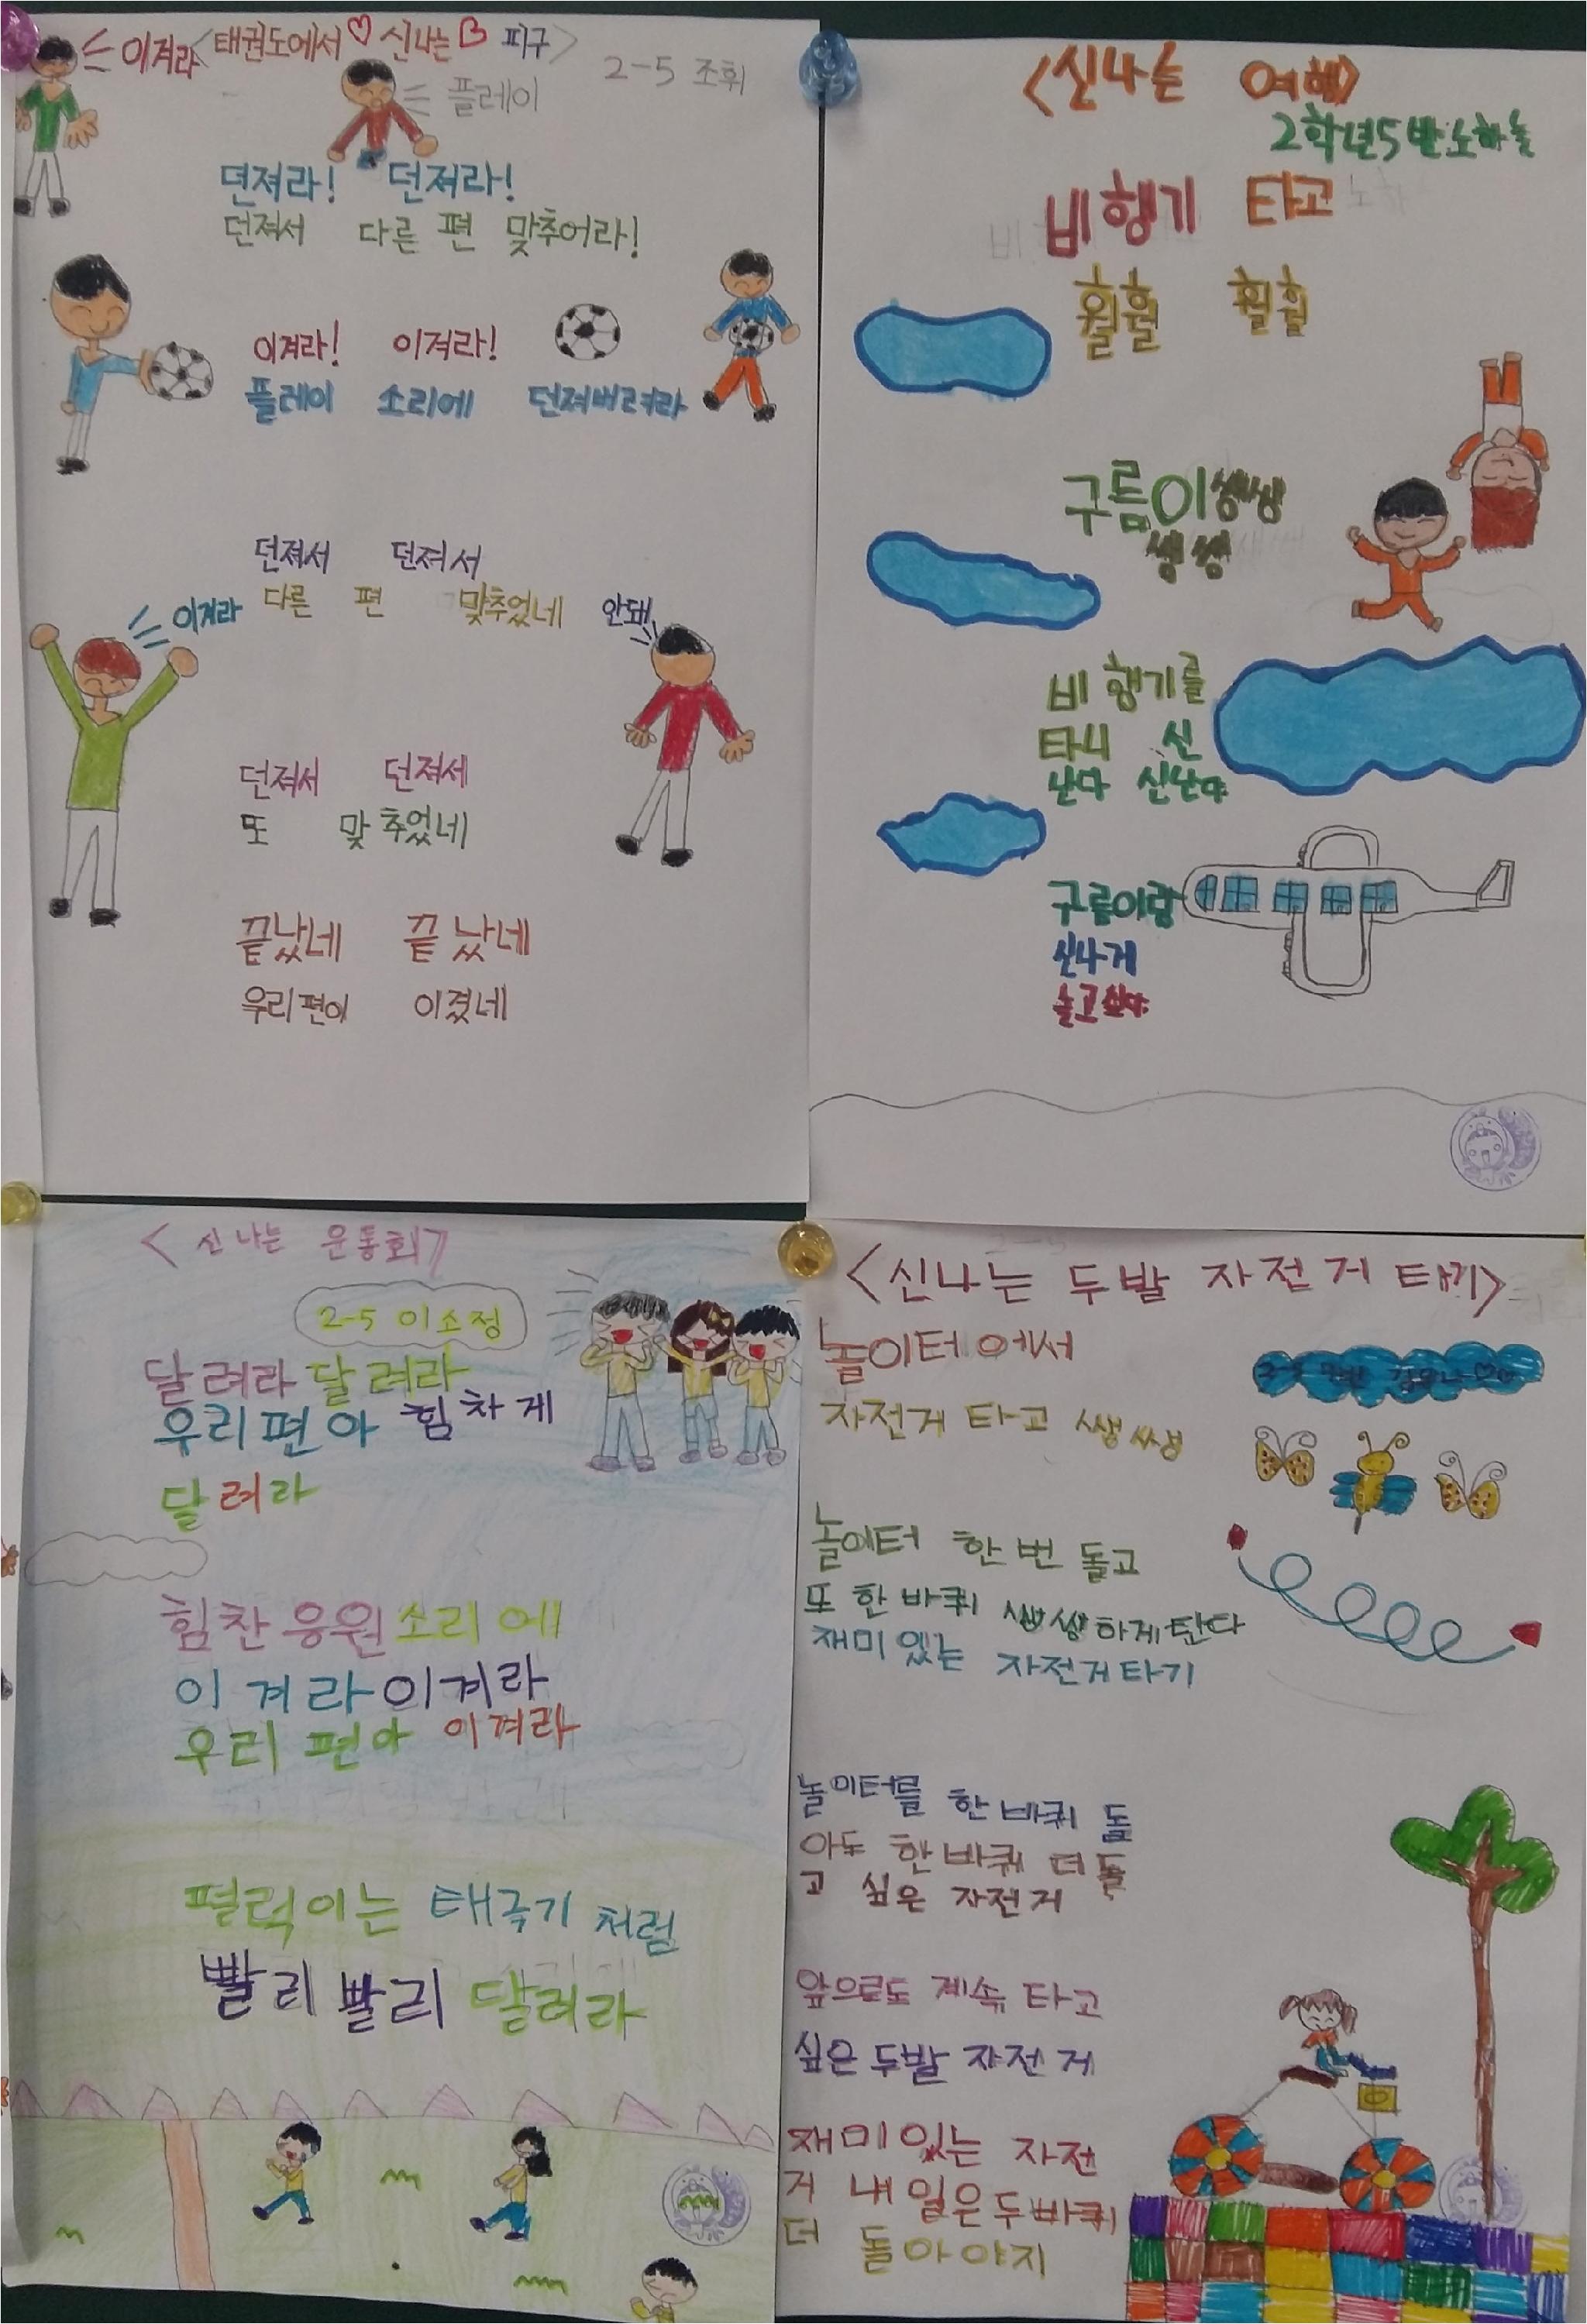 이겨라
<태권도에서♡ 신나는 피구>
2-5 조휘
플레이
던져라! 던져라!
던져서 다른 편 맞추어라!
이겨라! 이겨라!
플레이 소리에 던져버려라
던져서 던져서
다른 편 맞추었네
이겨라
안돼
던져서 던져세
또 맞추었네
끝났네 끝났네
우리편이 이겼네
<신나는 여행>
2학년5반노하늘
비행기 타고
훨훨 훨훨
구름이쌩쌩
쌩쌩
비행기를
타니 신
난다 신난다
구름이랑
신나게
놀고싶다
<신나는 운동회>
2-5 이소정
달려라달려라
우리편아 힘차게
달려라
힘찬응원소리에
이겨라이겨라
우리편아 이겨라
펄럭이는 태극기 처럼
빨리빨리 달려라
<신나는 두발 자전거 타기>
놀이터에서
자전거 타고 쌩쌩
놀이터 한번 돌고
또 한바퀴 쌩쌩하게탄다
재미있는 자전거타기
놀이터를 한바퀴 돌
아도 한바퀴 더 돌
고 싶은 자전거
앞으로도 계속 타고
싶은 두발 자전거
재미있는 자전
거 내일은두바퀴
더 돌아야지